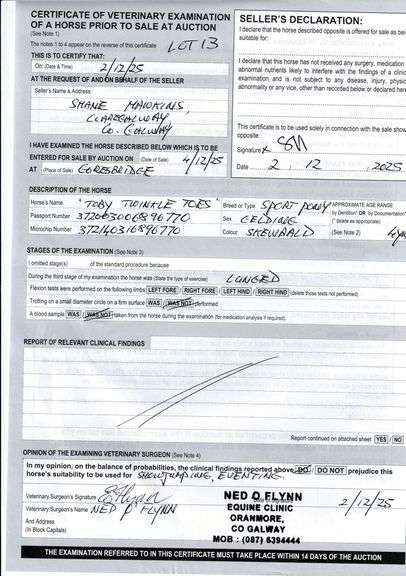 CERTIFICATE OF VETERINARY EXAMINATION
OF A HORSE PRIOR TO SALE AT AUCTION
(See Note 1)
The notes 1 to 4 appear on the reverse of this certificate
LOT 13
THIS IS TO CERTIFY THAT:
On: (Date & Time) 2/12/25
AT THE REQUEST OF AND ON BEHALF OF THE SELLER
Seller's Name & Address:
SHANE HAWKINS,
CLAREGALWAY
CO. GALWAY
I HAVE EXAMINED THE HORSE DESCRIBED BELOW WHICH IS TO BE
ENTERED FOR SALE BY AUCTION ON (Date of Sale) 4/12/25
AT (Place of Sale) GORESBRIDGE
SELLER'S DECLARATION:
I declare that the horse described opposite is offered for sale as bei
suitable for:
I declare that this horse has not received any surgery, medication
abnormal nutrients likely to interfere with the findings of a clinic
examination and is not subject to any disease, injury, physic
abnormality or vice, other than recorded below or declared here
This certificate is to be used solely in connection with the sale show
opposite.
Signature x
Date 2, 12, 2025
DESCRIPTION OF THE HORSE
Horse's Name 'TOBY TWINKLE TOES' Breed or Type SPORT PONY APPROXIMATE AGE RANGE
Passport Number 372003006896770 Sex GELDING by Dentition* OR, by Documentation*
(* delete as appropriate)
Microchip Number 372140316896770 Colour SKEWBALD (See Note 2)
STAGES OF THE EXAMINATION (See Note 3)
I omitted stage(s) of the standard procedure because
During the third stage of my examination the horse was (State the type of exercise) LUNGED
Flexion tests were performed on the following limbs LEFT FORE / RIGHT FORE / LEFT HIND / RIGHT HIND (delete those tests not performed)
Trotting on a small diameter circle on a firm surface WAS / WAS NOT performed
A blood sample WAS / WAS NOT taken from the horse during the examination (for medication analysis if required).
REPORT OF RELEVANT CLINICAL FINDINGS
Report continued on attached sheet YES / NO
OPINION OF THE EXAMINING VETERINARY SURGEON (See Note 4)
In my opinion, on the balance of probabilities, the clinical findings reported above DO / DO NOT prejudice this
horse's suitability to be used for SHOWJUMPING, EVENTING.
Veterinary Surgeon's Signature
Veterinary Surgeon's Name NED O'FLYNN
And Address
(In Block Capitals)
NED O FLYNN
EQUINE CLINIC
ORANMORE,
CO GALWAY
MOB : (087) 6394444
2/12/25
THE EXAMINATION REFERRED TO IN THIS CERTIFICATE MUST TAKE PLACE WITHIN 14 DAYS OF THE AUCTION